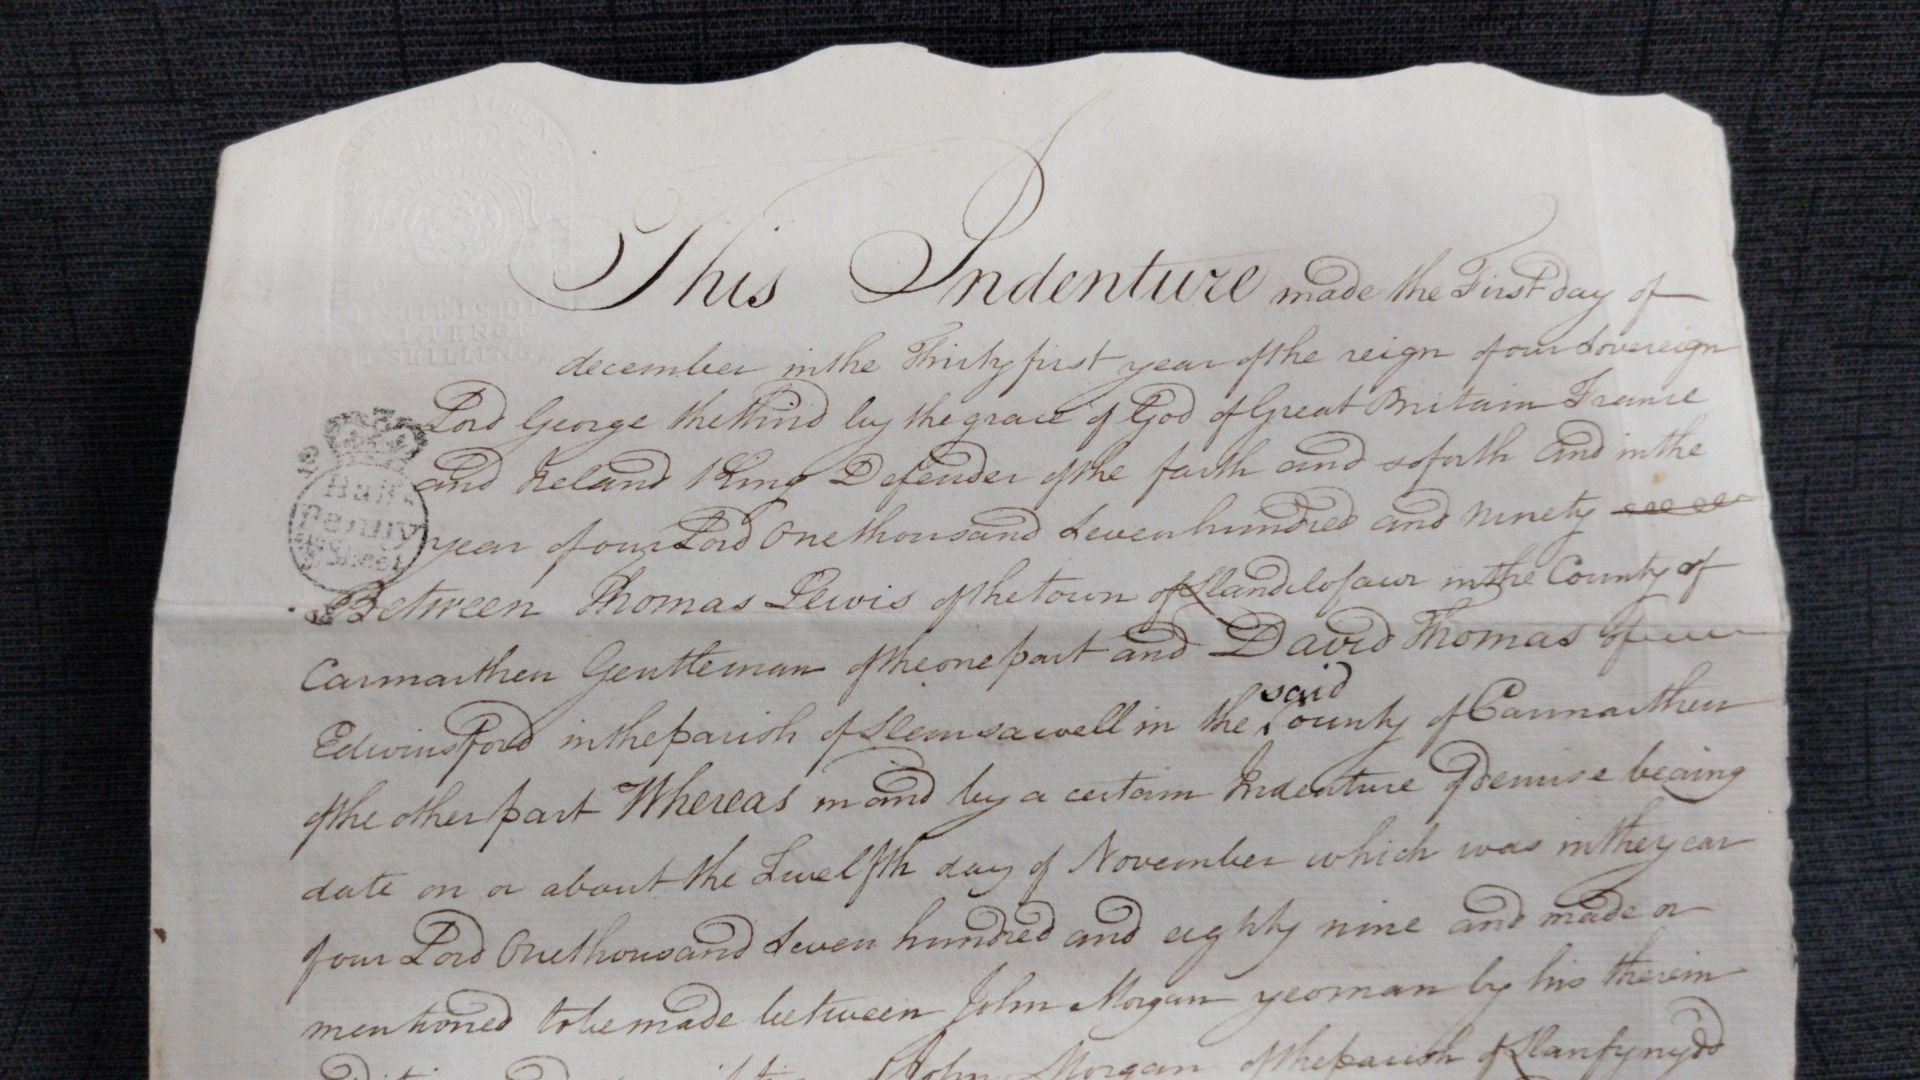 VI PENCE
I SHILLING
Half
Penny
Sheet
This Indenture made the First day of
december in the Thirty first year of the reign of our Sovereign
Lord George the third by the grace of God of Great Britain France
and Ireland King Defender of the faith and so forth And in the
year of our Lord One thousand Seven hundred and ninety
Between Thomas Lewis of the town of Llandilofawr in the County of
Carmarthen Gentleman of the one part and David Thomas of
said
Edwinsford in the parish of Llansawell in the County of Carmarthen
of the other part Whereas in and by a certain Indenture of demise bearing
date on or about the Twelfth day of November which was in the year
of our Lord One thousand Seven hundred and eighty nine and made or
mentioned to be made between John Morgan yeoman by his therein
John Morgan of the parish of Llanfynydd